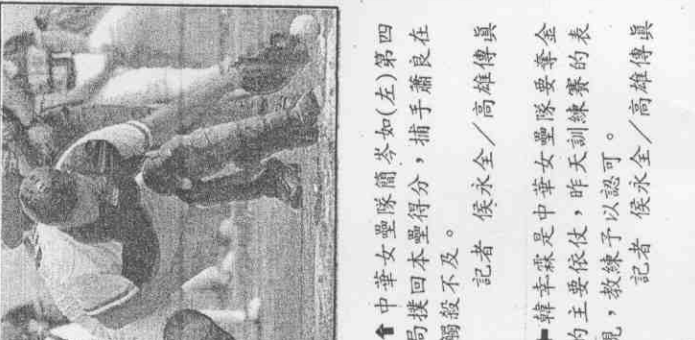 中華女壘隊簡岑如(左)第四
局撲回本壘得分，捕手蕭良在
觸殺不及。
記者　侯永全／高雄傳真
韓幸霖是中華女壘隊要奪金
的主要依仗，昨天訓練賽的表
現，教練予以認可。
記者　侯永全／高雄傳真